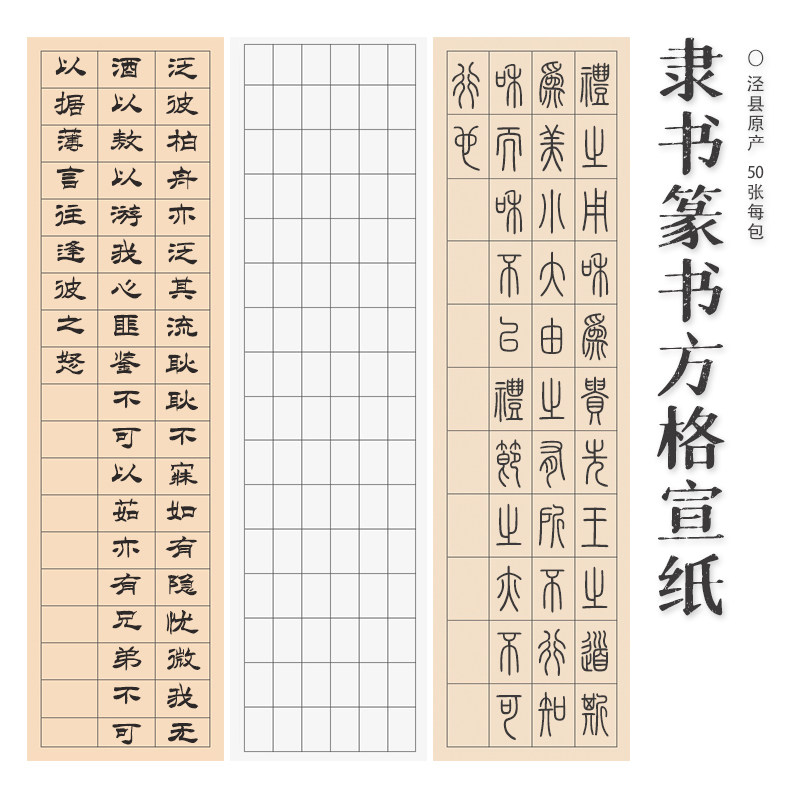 隶书篆书方格宣纸
〇 泾县原产 50张每包
禮之用和爲貴先王之道斯
爲美小大由之有所不行知
和而和不以禮節之亦不可
行也
泛彼柏舟亦泛其流耿耿不寐如有隐忧微我无
酒以敖以游我心匪鉴不可以茹亦有兄弟不可
以据薄言往逢彼之怒